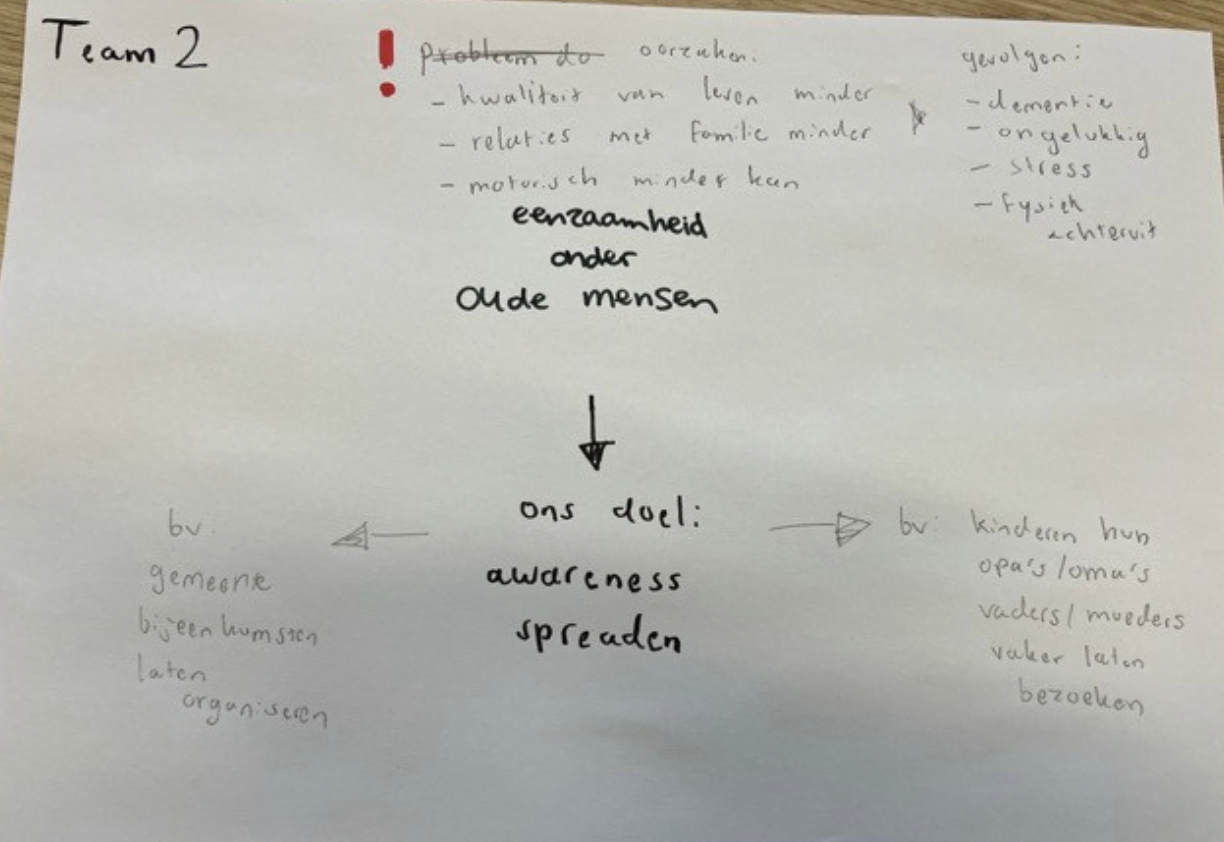 Team 2
! Probleem do oorzaken:
- kwaliteit van leven minder
- relaties met familie minder
- motorisch minder kan
gevolgen:
- dementie
- ongelukkig
- stress
- fysiek
achteruit
eenzaamheid
onder
oude mensen
ons doel:
awareness
spreaden
bv:
gemeente
bijeenkomsten
laten
organiseren
bv: kinderen hun
opa's/oma's
vaders/moeders
vaker laten
bezoeken